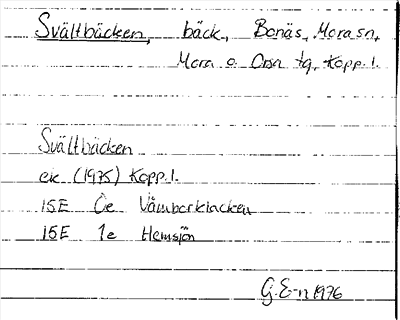 Svältbäcken, bäck, Bonäs, Mora sn,
Mora o. Orsa tg, Kopp. l.
Svältbäcken
ek (1975) Kopp. l.
15E 0e Våmbarklacken
15E 1e Hemsjön
G. E-n 1976